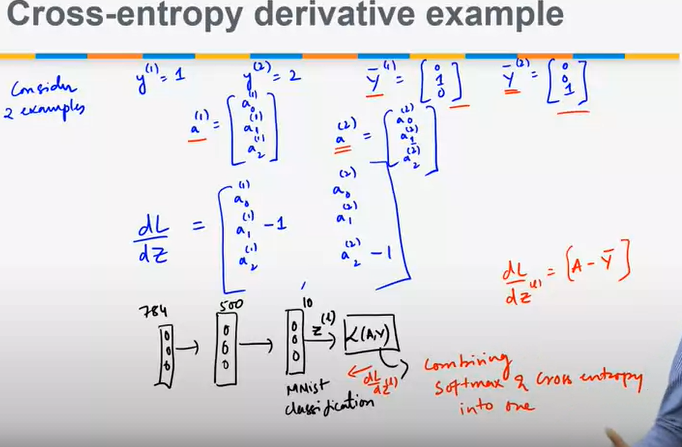 Cross-entropy derivative example
Consider
2 examples
y⁽¹⁾ = 1
y⁽²⁾ = 2
Ȳ⁽¹⁾ = [0 1 0]
Ȳ⁽²⁾ = [0 0 1]
a⁽¹⁾ = [a₀⁽¹⁾ a₁⁽¹⁾ a₂⁽¹⁾]
a⁽²⁾ = [a₀⁽²⁾ a₁⁽²⁾ a₂⁽²⁾]
dL/dZ = [a₀⁽¹⁾ a₀⁽²⁾
a₁⁽¹⁾ - 1 a₁⁽²⁾
a₂⁽¹⁾ a₂⁽²⁾ - 1]
dL/dZ⁽ˡ⁾ = [A - Ȳ]
784
500
10
Z⁽ˡ⁾
L(A,Y)
dL/dZ⁽ˡ⁾
MNist
classification
Combining
softmax & cross entropy
into one